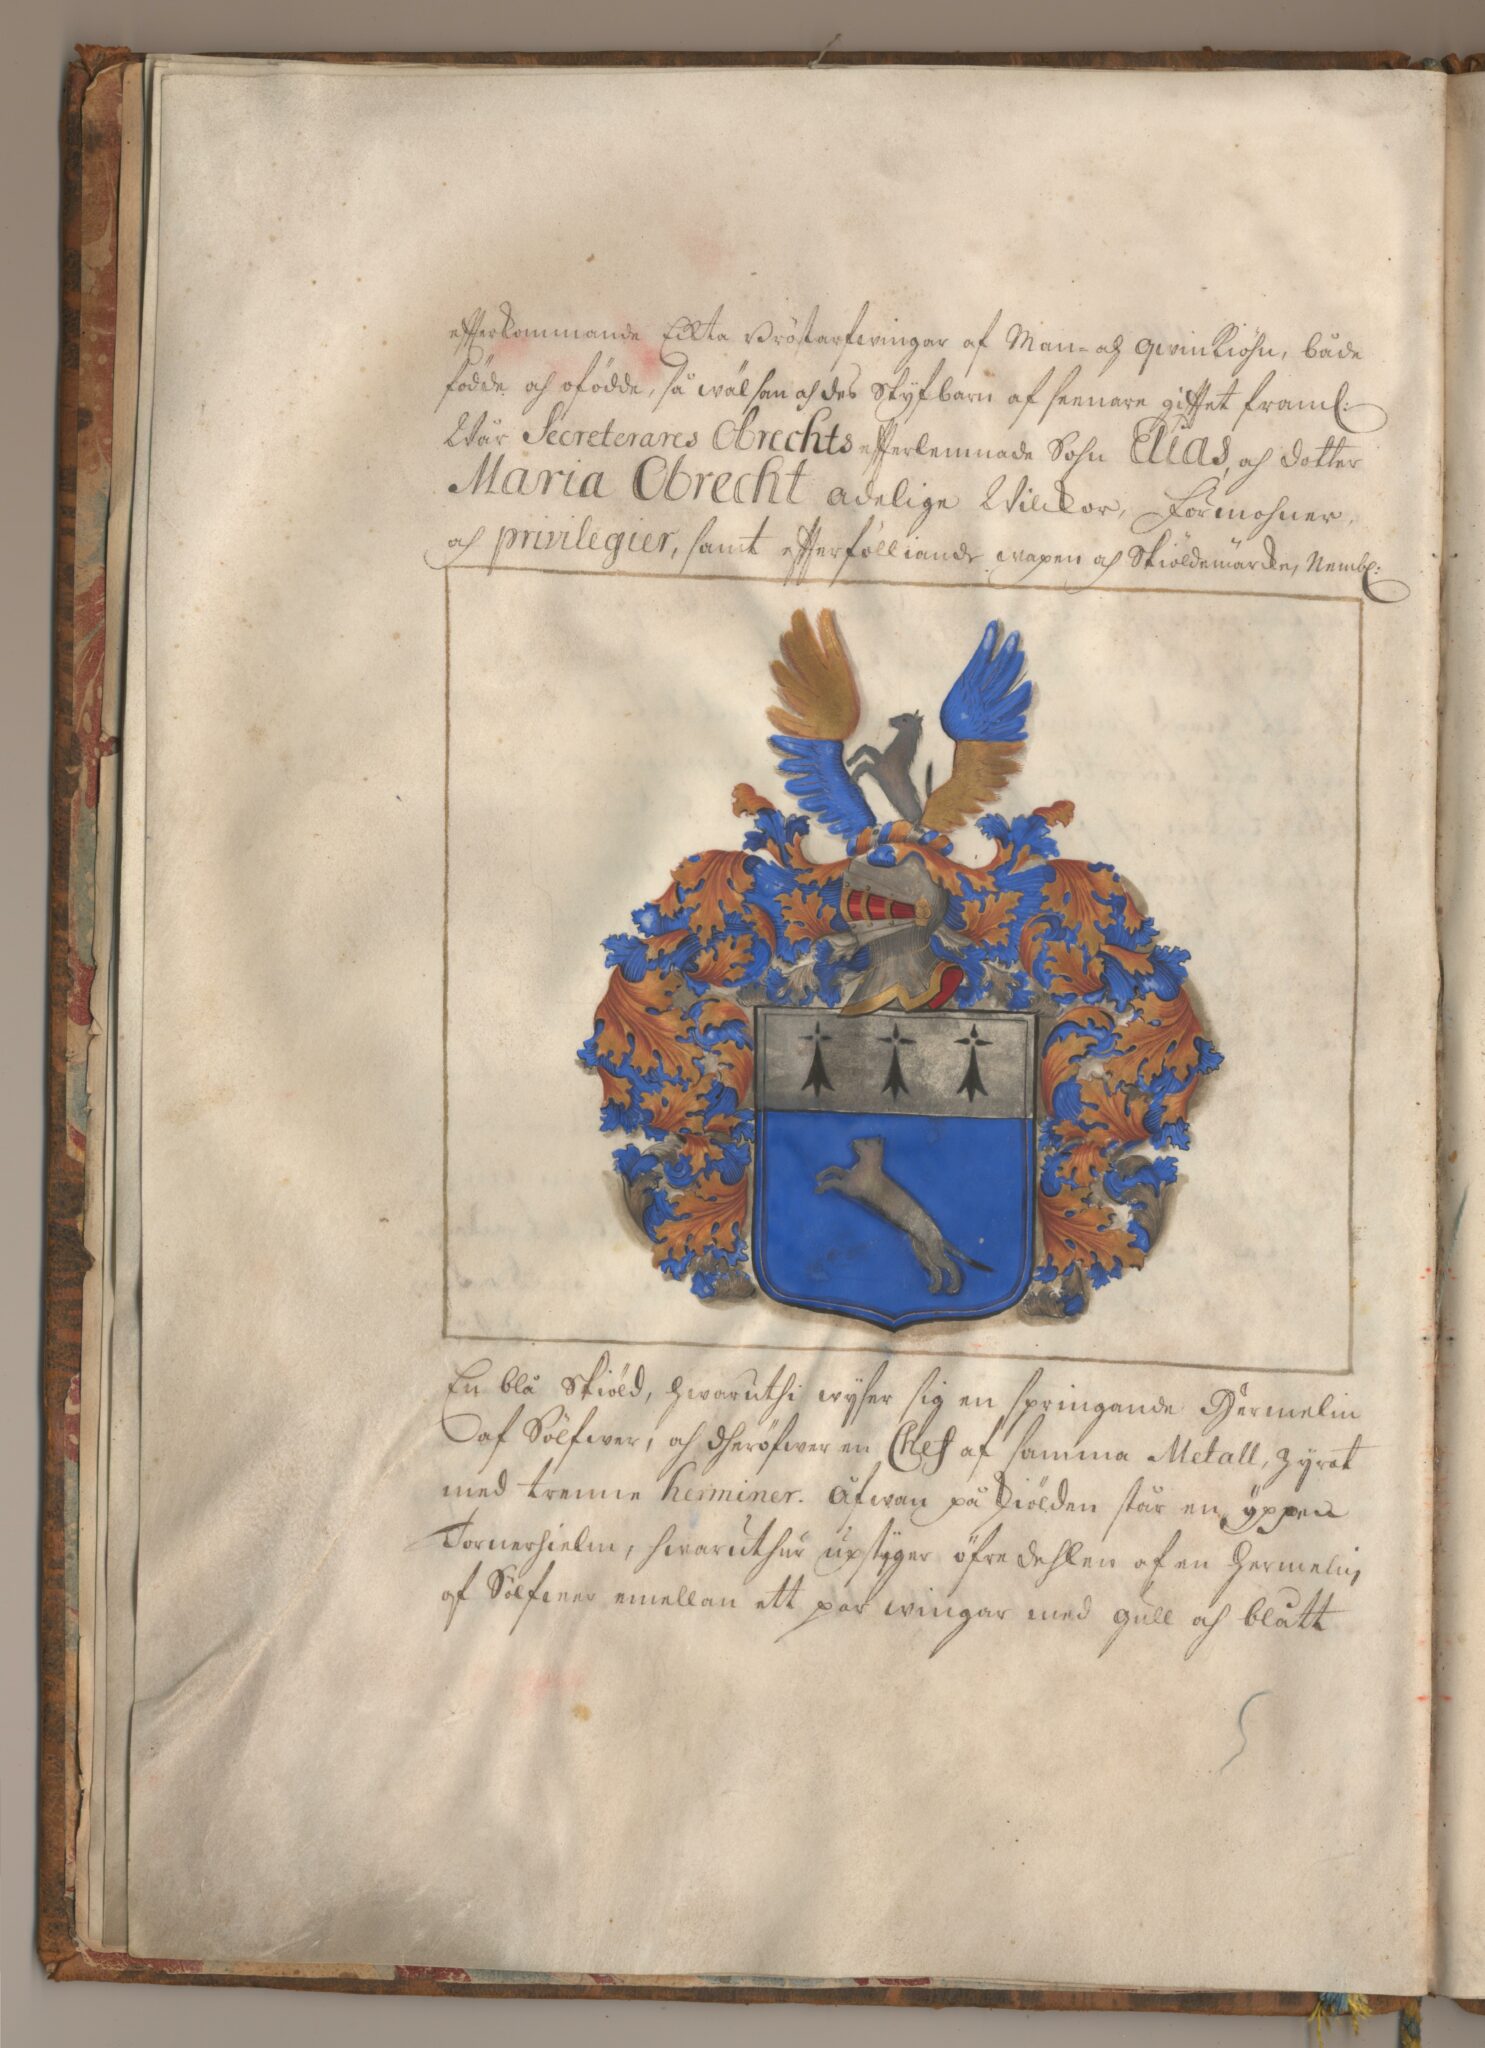 effterkommande Eckta Bröstarfwingar af Man- och qwinkiöhn, både
födde och ofödde, så wäl han och des Styfbarn af seenare gifftet framl:
Wår Secreterares Obrechts effterlemnade Sohn Elias, och dotter
Maria Obrecht adelige Wilckor, Förmohner,
och privilegier, samt effterfölliande wapen och Skiöldemärcke, Nembl:
En blå Skiöld, hwaruthi wyser sig en springande Hermelin
af Sölfwer, och dheröfwer en Chef af samma Metall, Zyrat
med trenne herminer. Åfwan på Skiölden står en öppen
Tornerhielm, hwaruthur upstyger öfre dehlen af en Hermelin,
af Sölfwer emellan ett par wingar med gull och blått